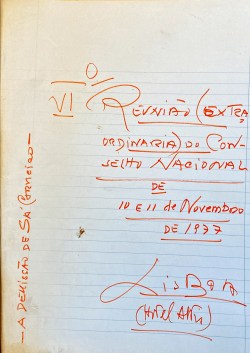 VI O REUNIÃO (EXTRA
ORDINARIA) DO CON-
SELHO NACIONAL
DE
10 E 11 de Novembro
DE 1977
LisBoa
(Hotel Altis)
— A DEMISSÃO DE SÁ CARNEIRO —